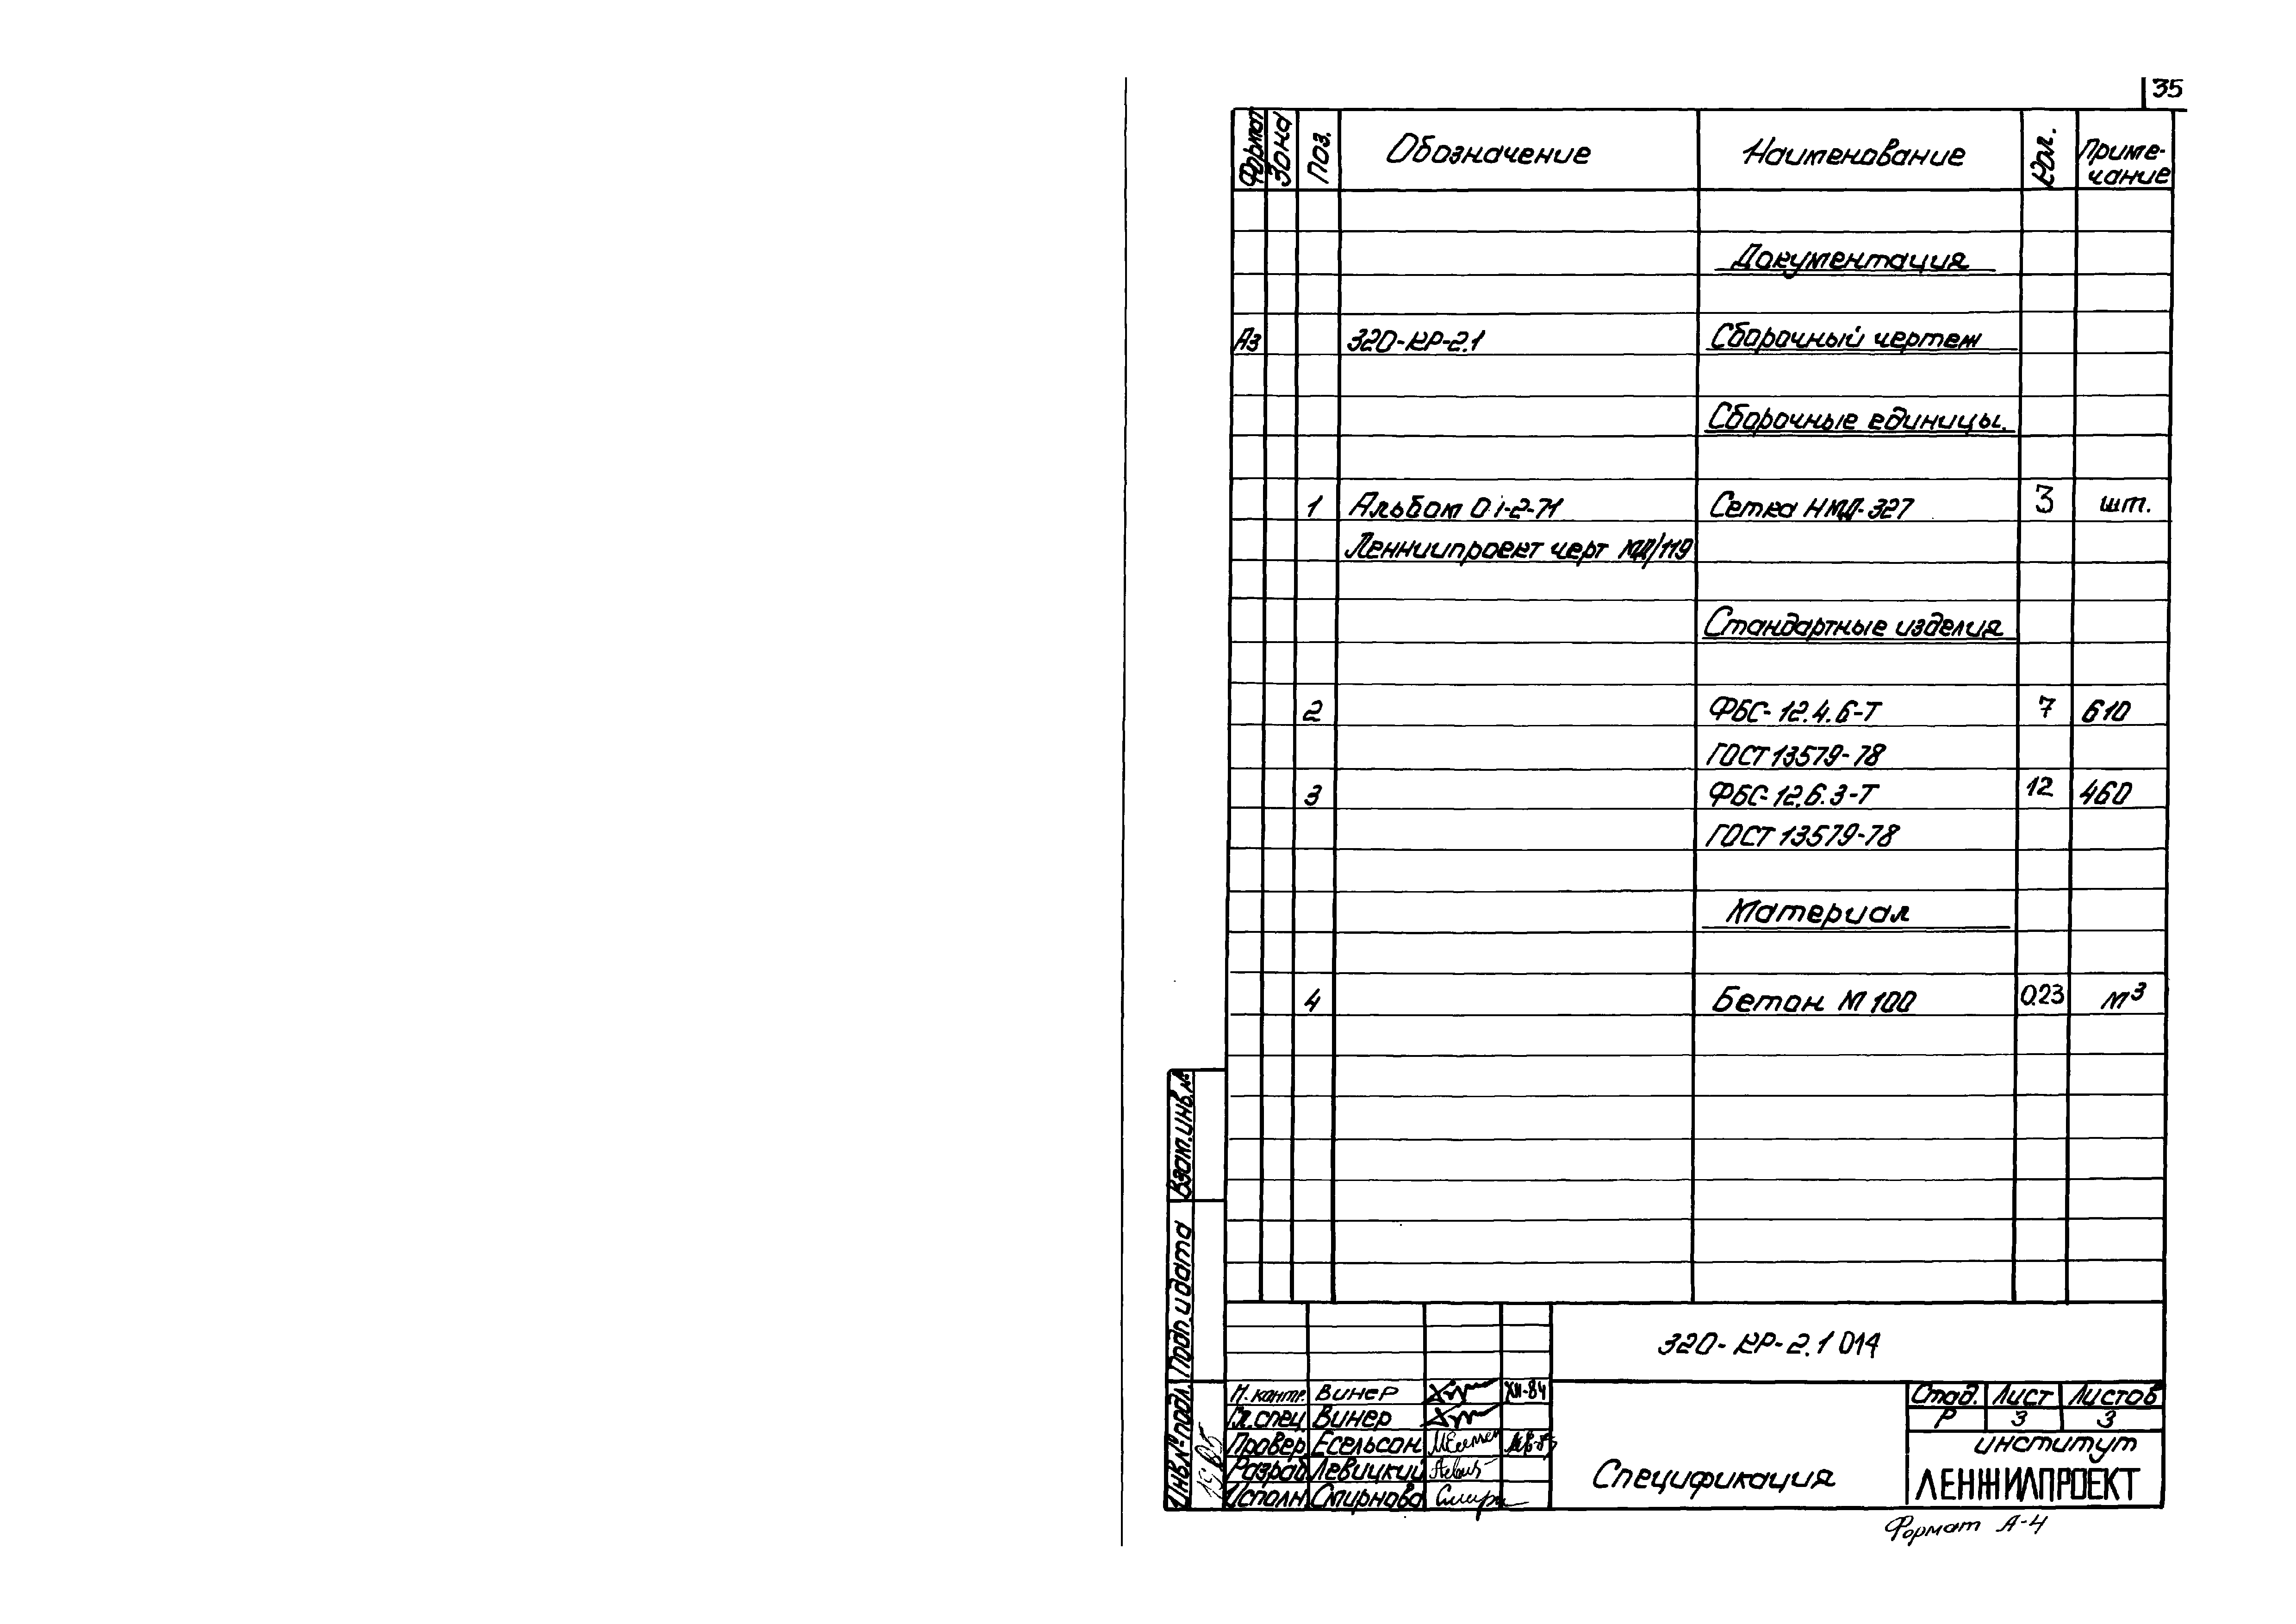 35
Формат Зона Поз. Обозначение Наименование Кол. Приме-
чание
Документация
А3 320-КР-2.1 Сборочный чертеж
Сборочные единицы.
1 Альбом 0.1-2-71 Сетка НМД-327 3 шт.
Ленниипроект черт МД/119
Стандартные изделия
2 ФБС-12.4.6-Т 7 610
ГОСТ 13579-78
3 ФБС-12.6.3-Т 12 460
ГОСТ 13579-78
Материал
4 Бетон М 100 0.23 м³
Взам.инв.№
Подп. и дата
Инв.№ подл.
320-КР-2.1 014
Н. контр. Винер XII-84
Гл.спец. Винер
Провер. Есельсон
Разраб. Левицкий
Исполн. Смирнова
Спецификация
Стад. Лист Листов
Р 3 3
институт
ЛЕНЖИЛПРОЕКТ
Формат А-4